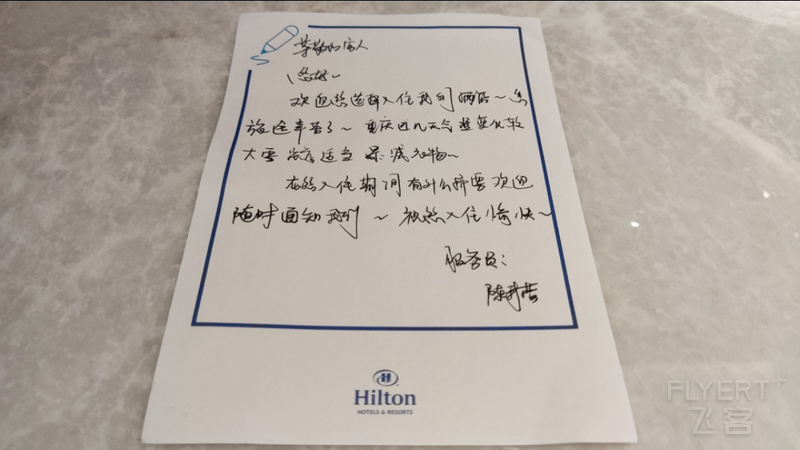 尊敬的客人
您好~
欢迎您选择入住我们酒店~您
旅途辛苦了~重庆近几天气温变化较
大 需 适当 添减衣物~
在您入住期间有什么需要欢迎
随时通知我们~祝您入住愉快~
服务员:
陈
Hilton
HOTELS & RESORTS
FLYERT+
飞客